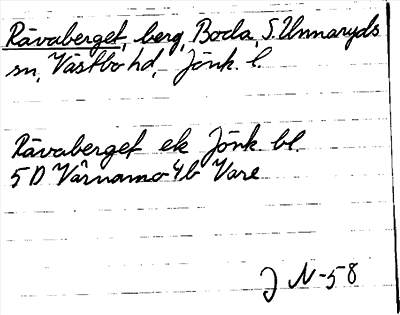 Rävaberget, berg, Boda, S. Unnaryds
sn, Västbo hd, Jönk. l.
Rävaberget ek Jönk bl.
5 D Värnamo 4b Vare
J N-58